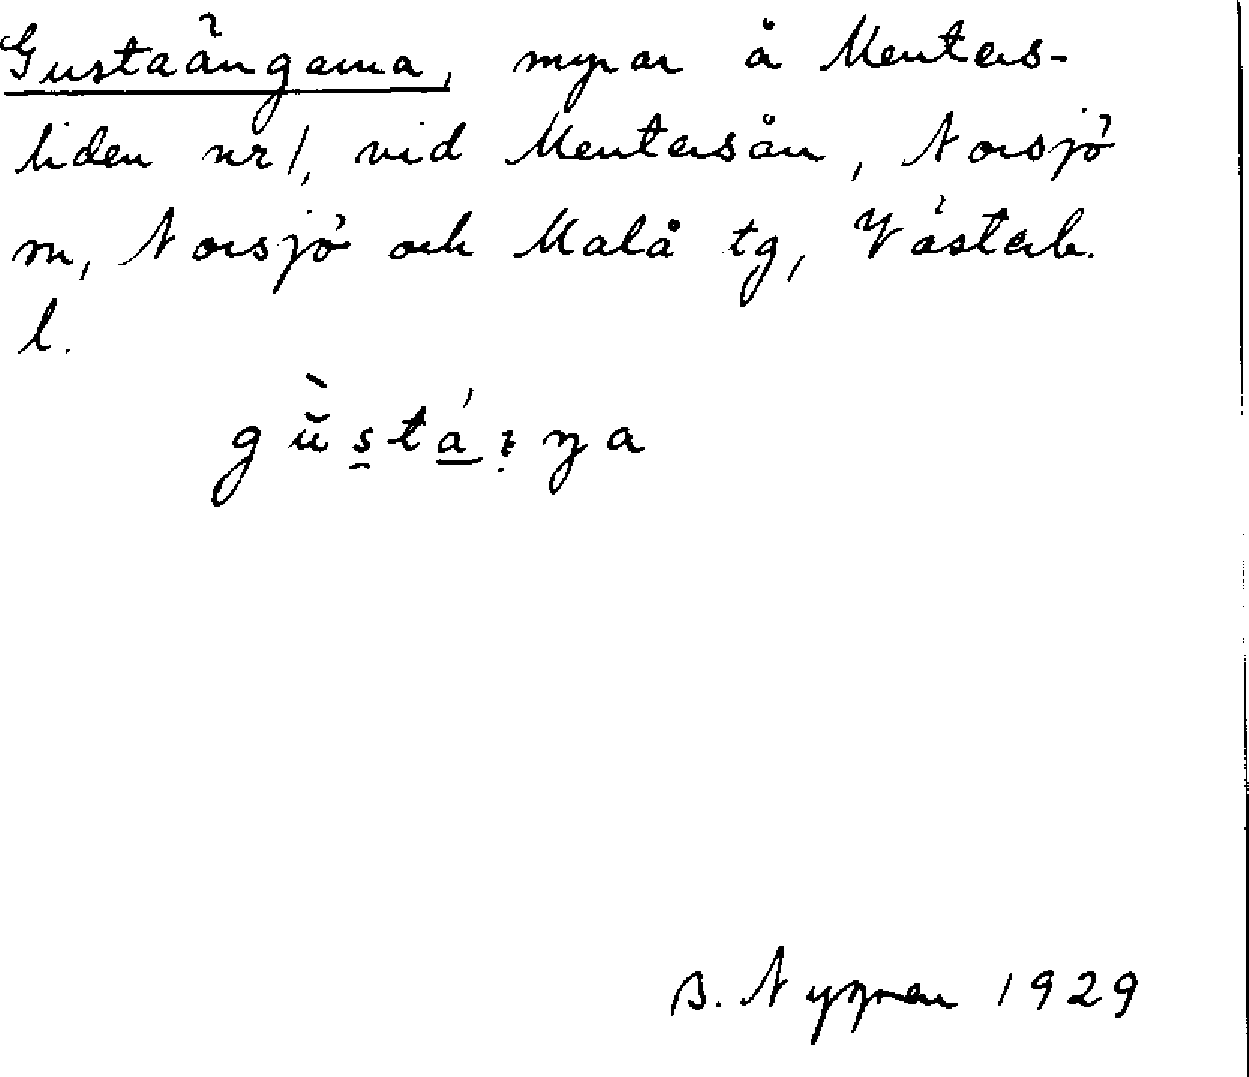 Gustaängarna, myrar å Menters-
liden nr 1, vid Mentersån, Norsjö
sn, Norsjö och Malå tg, Västerb.
l.
B. Nygren 1929